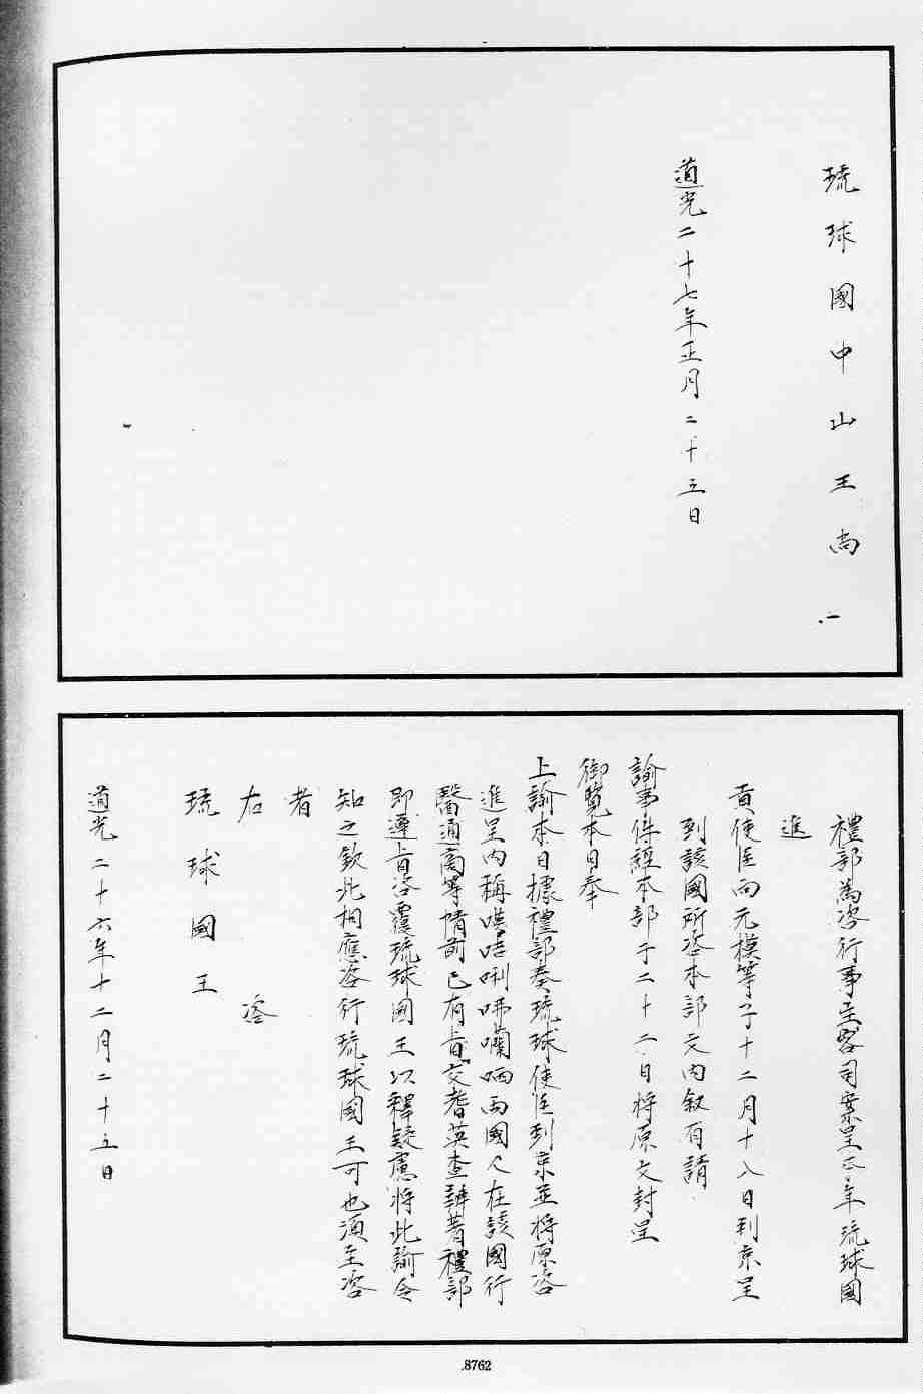 琉球國中山王尚
道光二十七年正月二十三日
禮部為咨行事主客司案呈正年琉球國
進
貢使臣向元模等于十二月十八日到京呈
到該國所咨本部文內叙有請
諭事件經本部于二十二日將原文封呈
御覽本日奉
上諭本日據禮部奏琉球使臣到京並將原咨
進呈內稱𠸄咭唎咈囒哂兩國人在該國行
醫通商等情前已有旨交耆英查辦著禮部
即遵旨咨覆琉球國王以釋疑慮將此諭令
知之欽此相應咨行琉球國王可也須至咨
者
右咨
琉球國王
道光二十六年十二月二十五日
8762